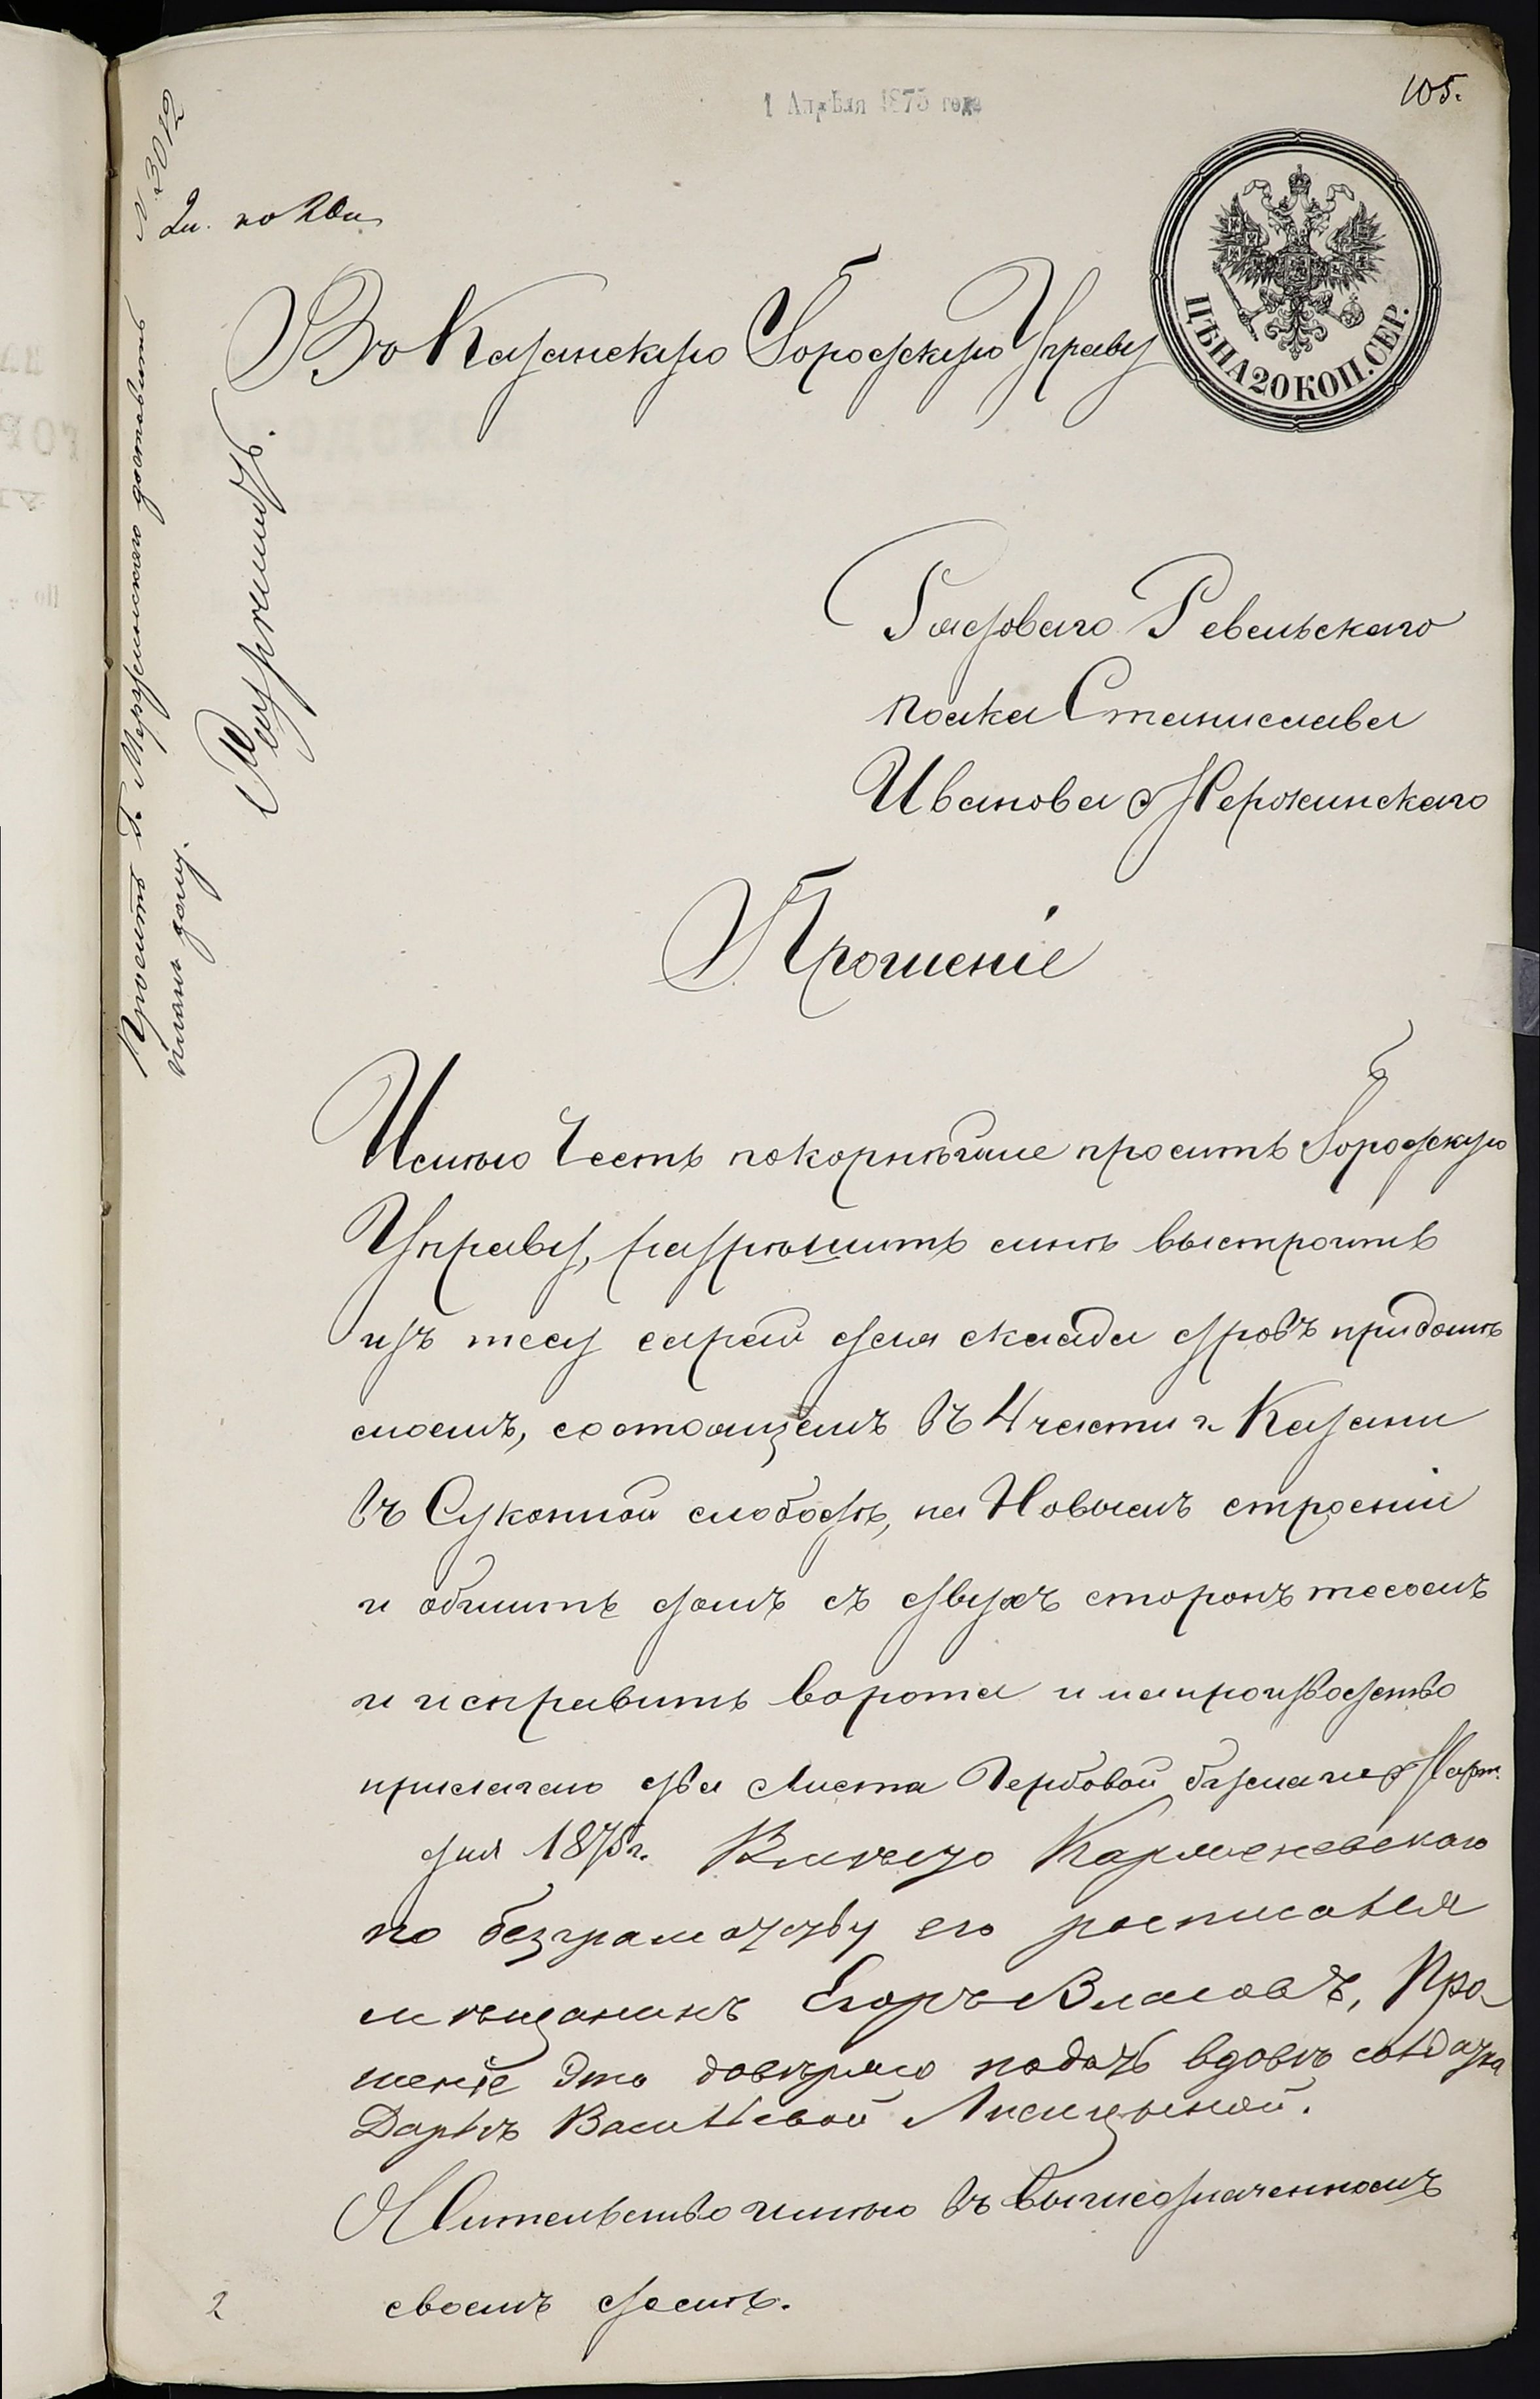 1 Апрѣля 1875 года
105.
N. 3012
2 л. по 20 к
Въ Казанскую Городскую Управу
ЦѢНА 20 КОП. СЕР.
Рядоваго Ревельскаго
полка Станислава
Иванова
Прошеніе
Имѣю Честь покорнѣйше просить Городскую
Управу, разрѣшить мнѣ выстроить
изъ тесу сарай для склада дровъ при домѣ
моемъ, состоящемъ въ 4 части г. Казани
въ Суконной слободѣ, на Новомъ строеніи
и обшить домъ съ двухъ сторонъ тесомъ
и исправить ворота и на производство
прилагаю два Листа Гербовой бумаги Март.
дня 1875 г.
по безграмотству его росписался
мѣщанинъ Егоръ Власовъ, Про-
шеніе Это довѣряю подать вдовѣ солдатка
Дарьѣ Васильевой Лисицыной.
Жительство имѣю въ вышеозначенномъ
своемъ домѣ.
2
Просить г. достовить
планъ дому.
Разрѣшить.